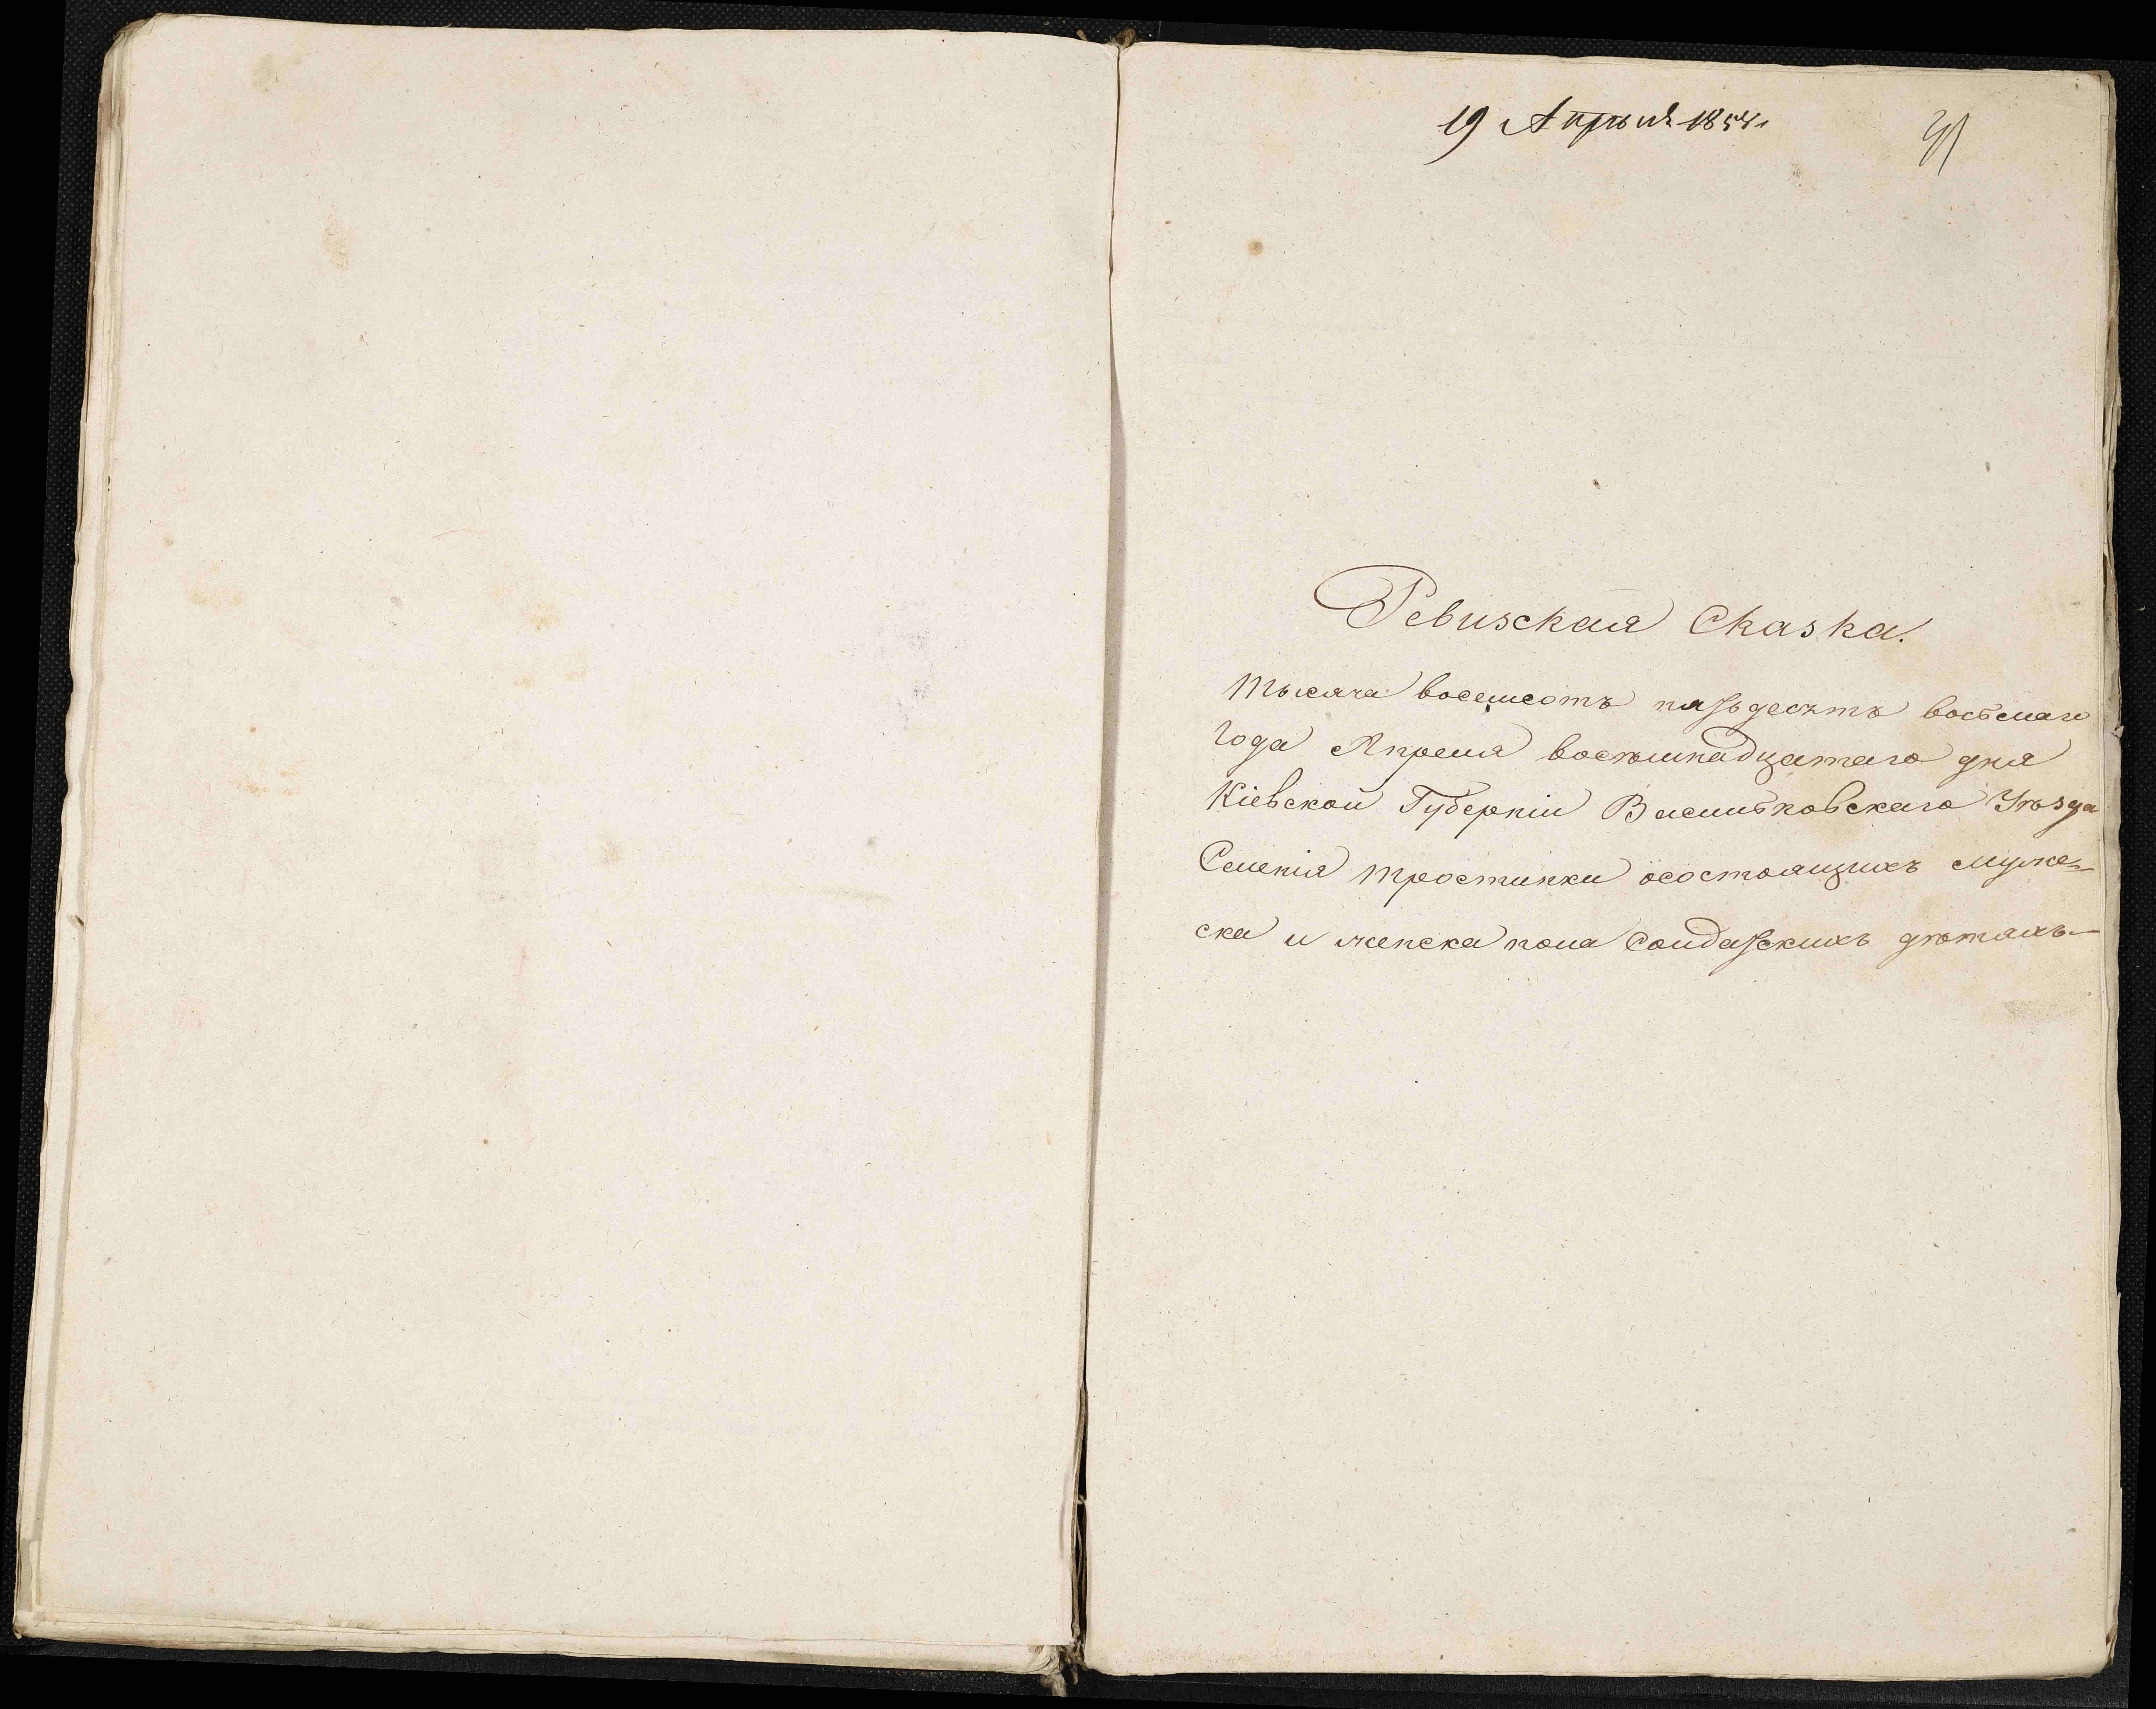 19 Апрѣля 1858 г.
Ревизская Сказка.
Тысяча восемсотъ пятьдесятъ восьмаго
Года Апреля восѣмнадцатаго дня
Кіевской Губерніи Васильковскаго Уѣзда
Селенія Тростинки осостоящихъ муже-
ска и женска пола Солдатскихъ дѣтяхъ—